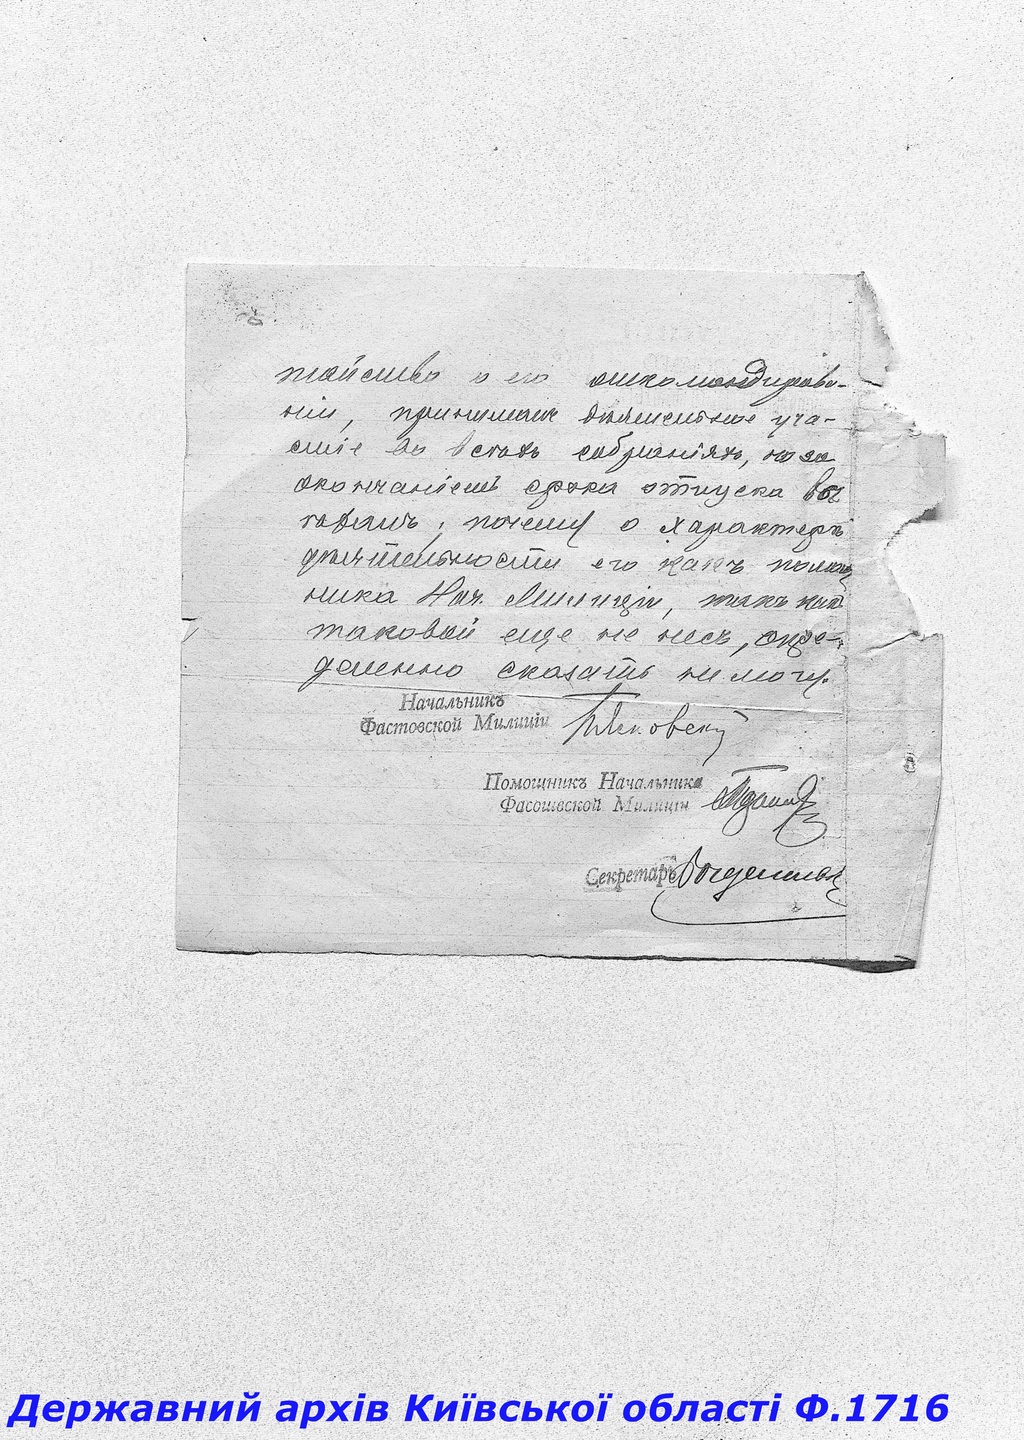 тайство о его откомандирова-
ніи, принималъ уча-
стіе во всехъ собраніяхъ, но за
окончаніемъ срока отпуска вы
почему о характере
деятельности его какъ помощ
ника Нач. Милиціи, такъ какъ
таковой еще не несъ, опре-
деленно сказать не могу.
Начальникъ
Фастовской Милиціи
Помощникъ Начальника
Фастовской Милиціи
Секретарь
Державний архів Київської області Ф.1716